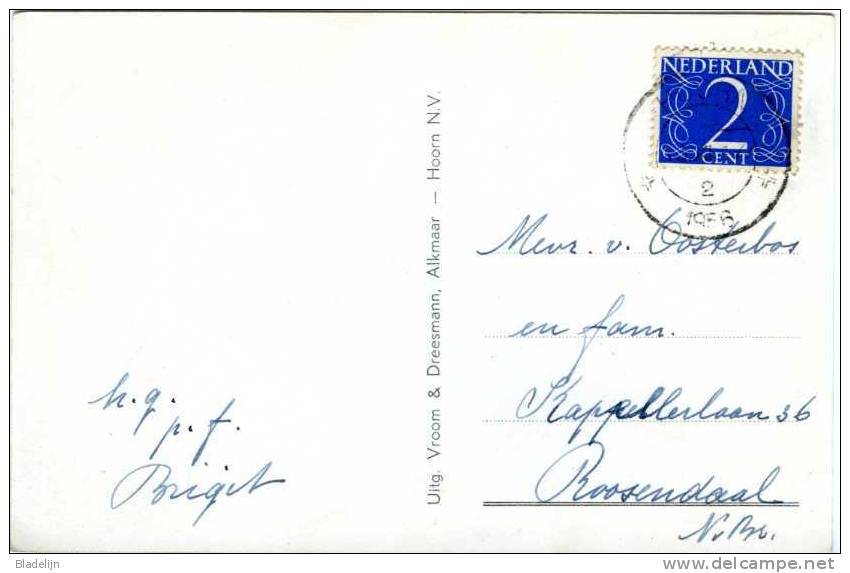 NEDERLAND
2
CENT
2
1956
Uitg. Vroom & Dreesmann, Alkmaar — Hoorn N.V.
h.g.
p.f.
Brigit
Mevr. v. Oosterbos
en fam.
Kappellerlaan 36
Roosendaal
N.Br.
Bladelijn
delcampe.net